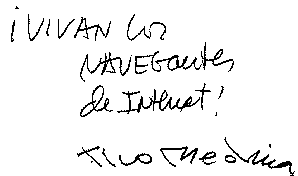 ¡VIVAN los
NAVEGantes
de Internet!
Tico Medina